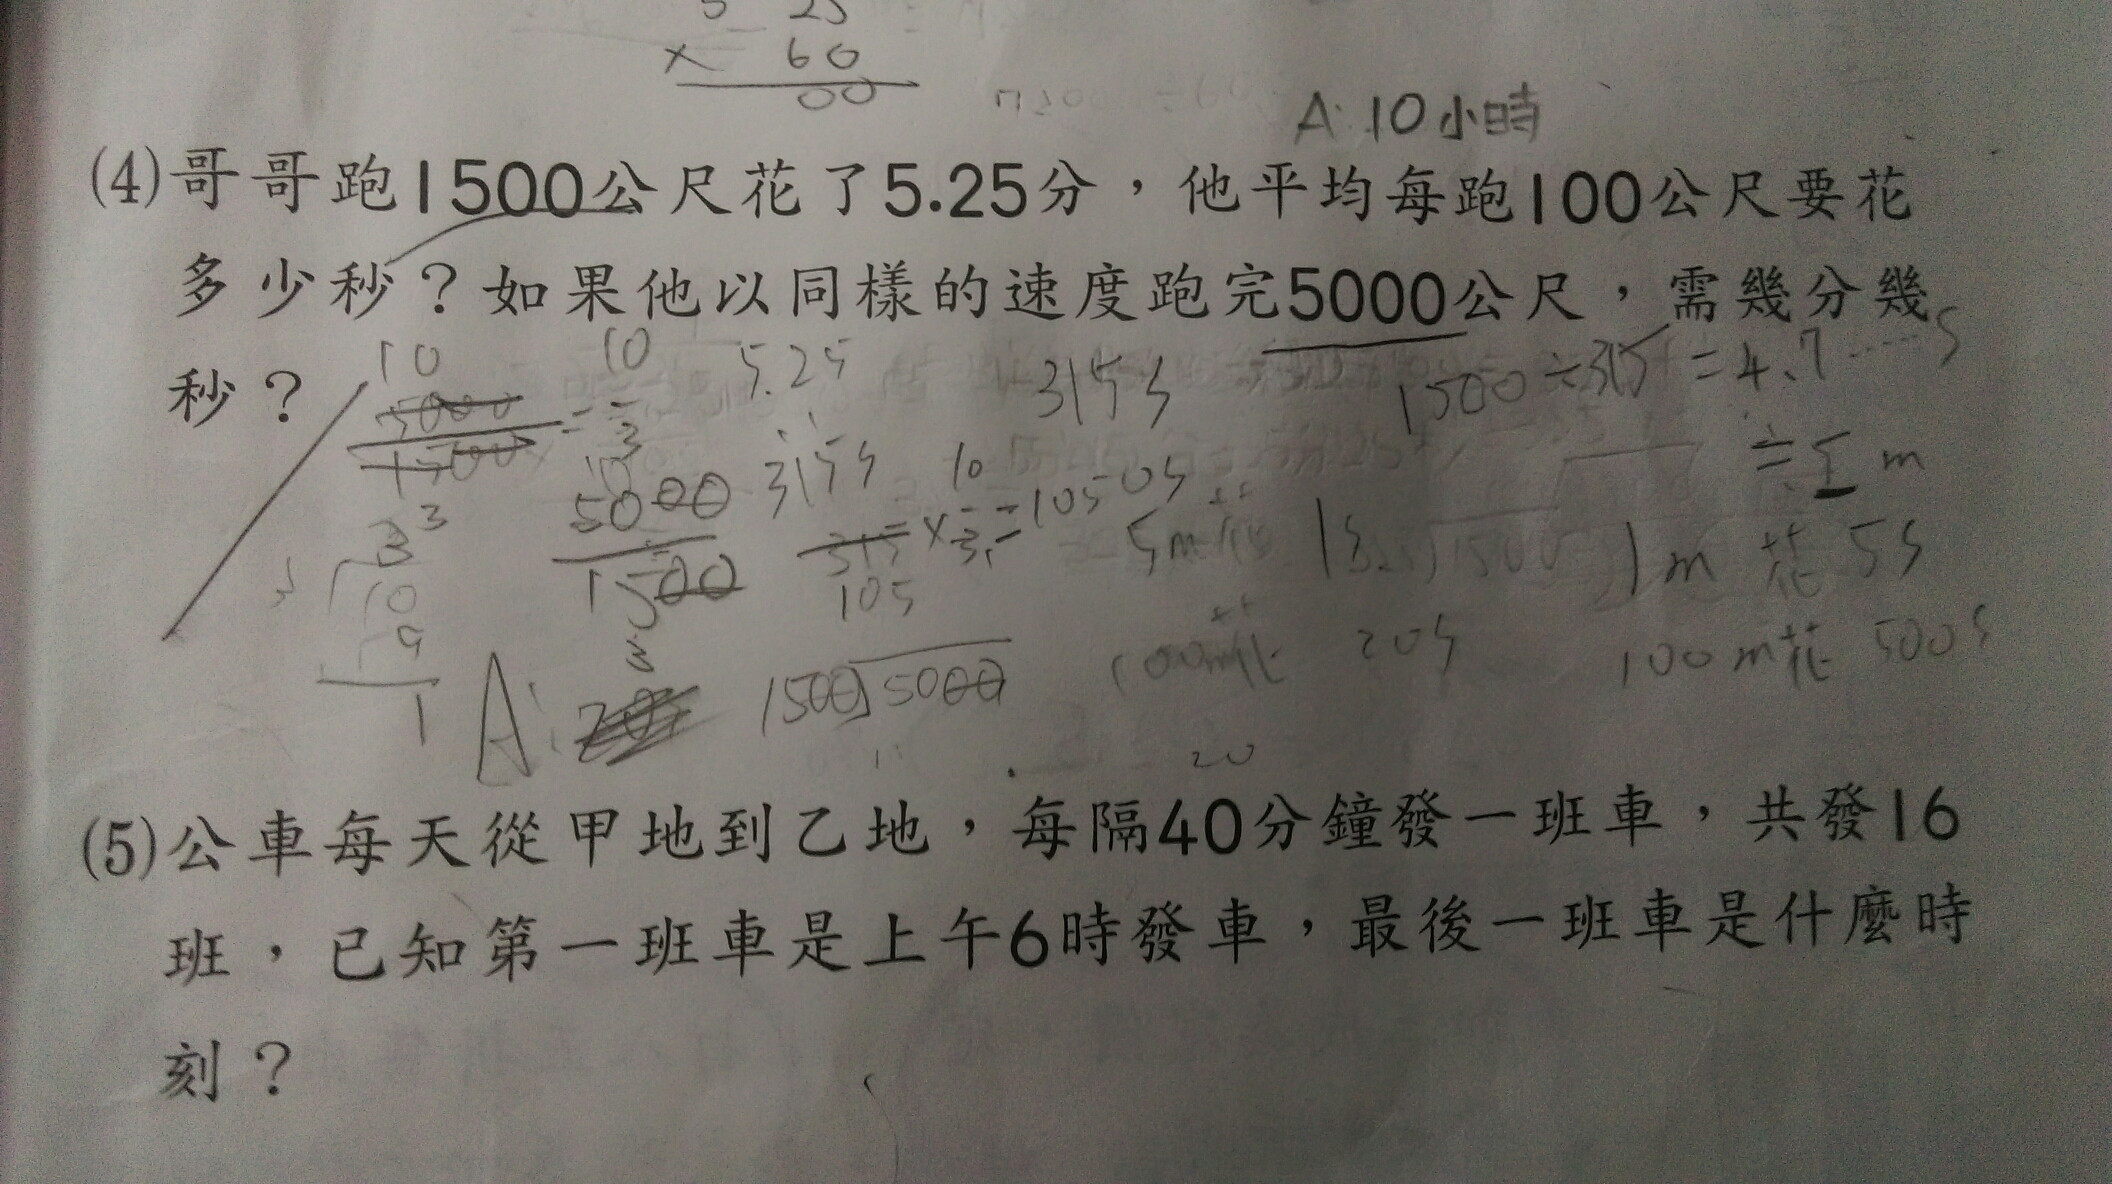 5 25
× 60
00
A: 10小時
(4)哥哥跑1500公尺花了5.25分，他平均每跑100公尺要花
多少秒？如果他以同樣的速度跑完5000公尺，需幾分幾
秒？
10
5000
1500
= 10
3
5.25
315s
315s
1500÷315=4.7……5
≐5 m
5000
1500
10
315 × 10 = 1050s
3
105
3
3
3 10
9
1
5m花 1s
1m 花 5s
100m花 20s
100m花 500s
A:
1500 5000
20
(5)公車每天從甲地到乙地，每隔40分鐘發一班車，共發16
班，已知第一班車是上午6時發車，最後一班車是什麼時
刻？